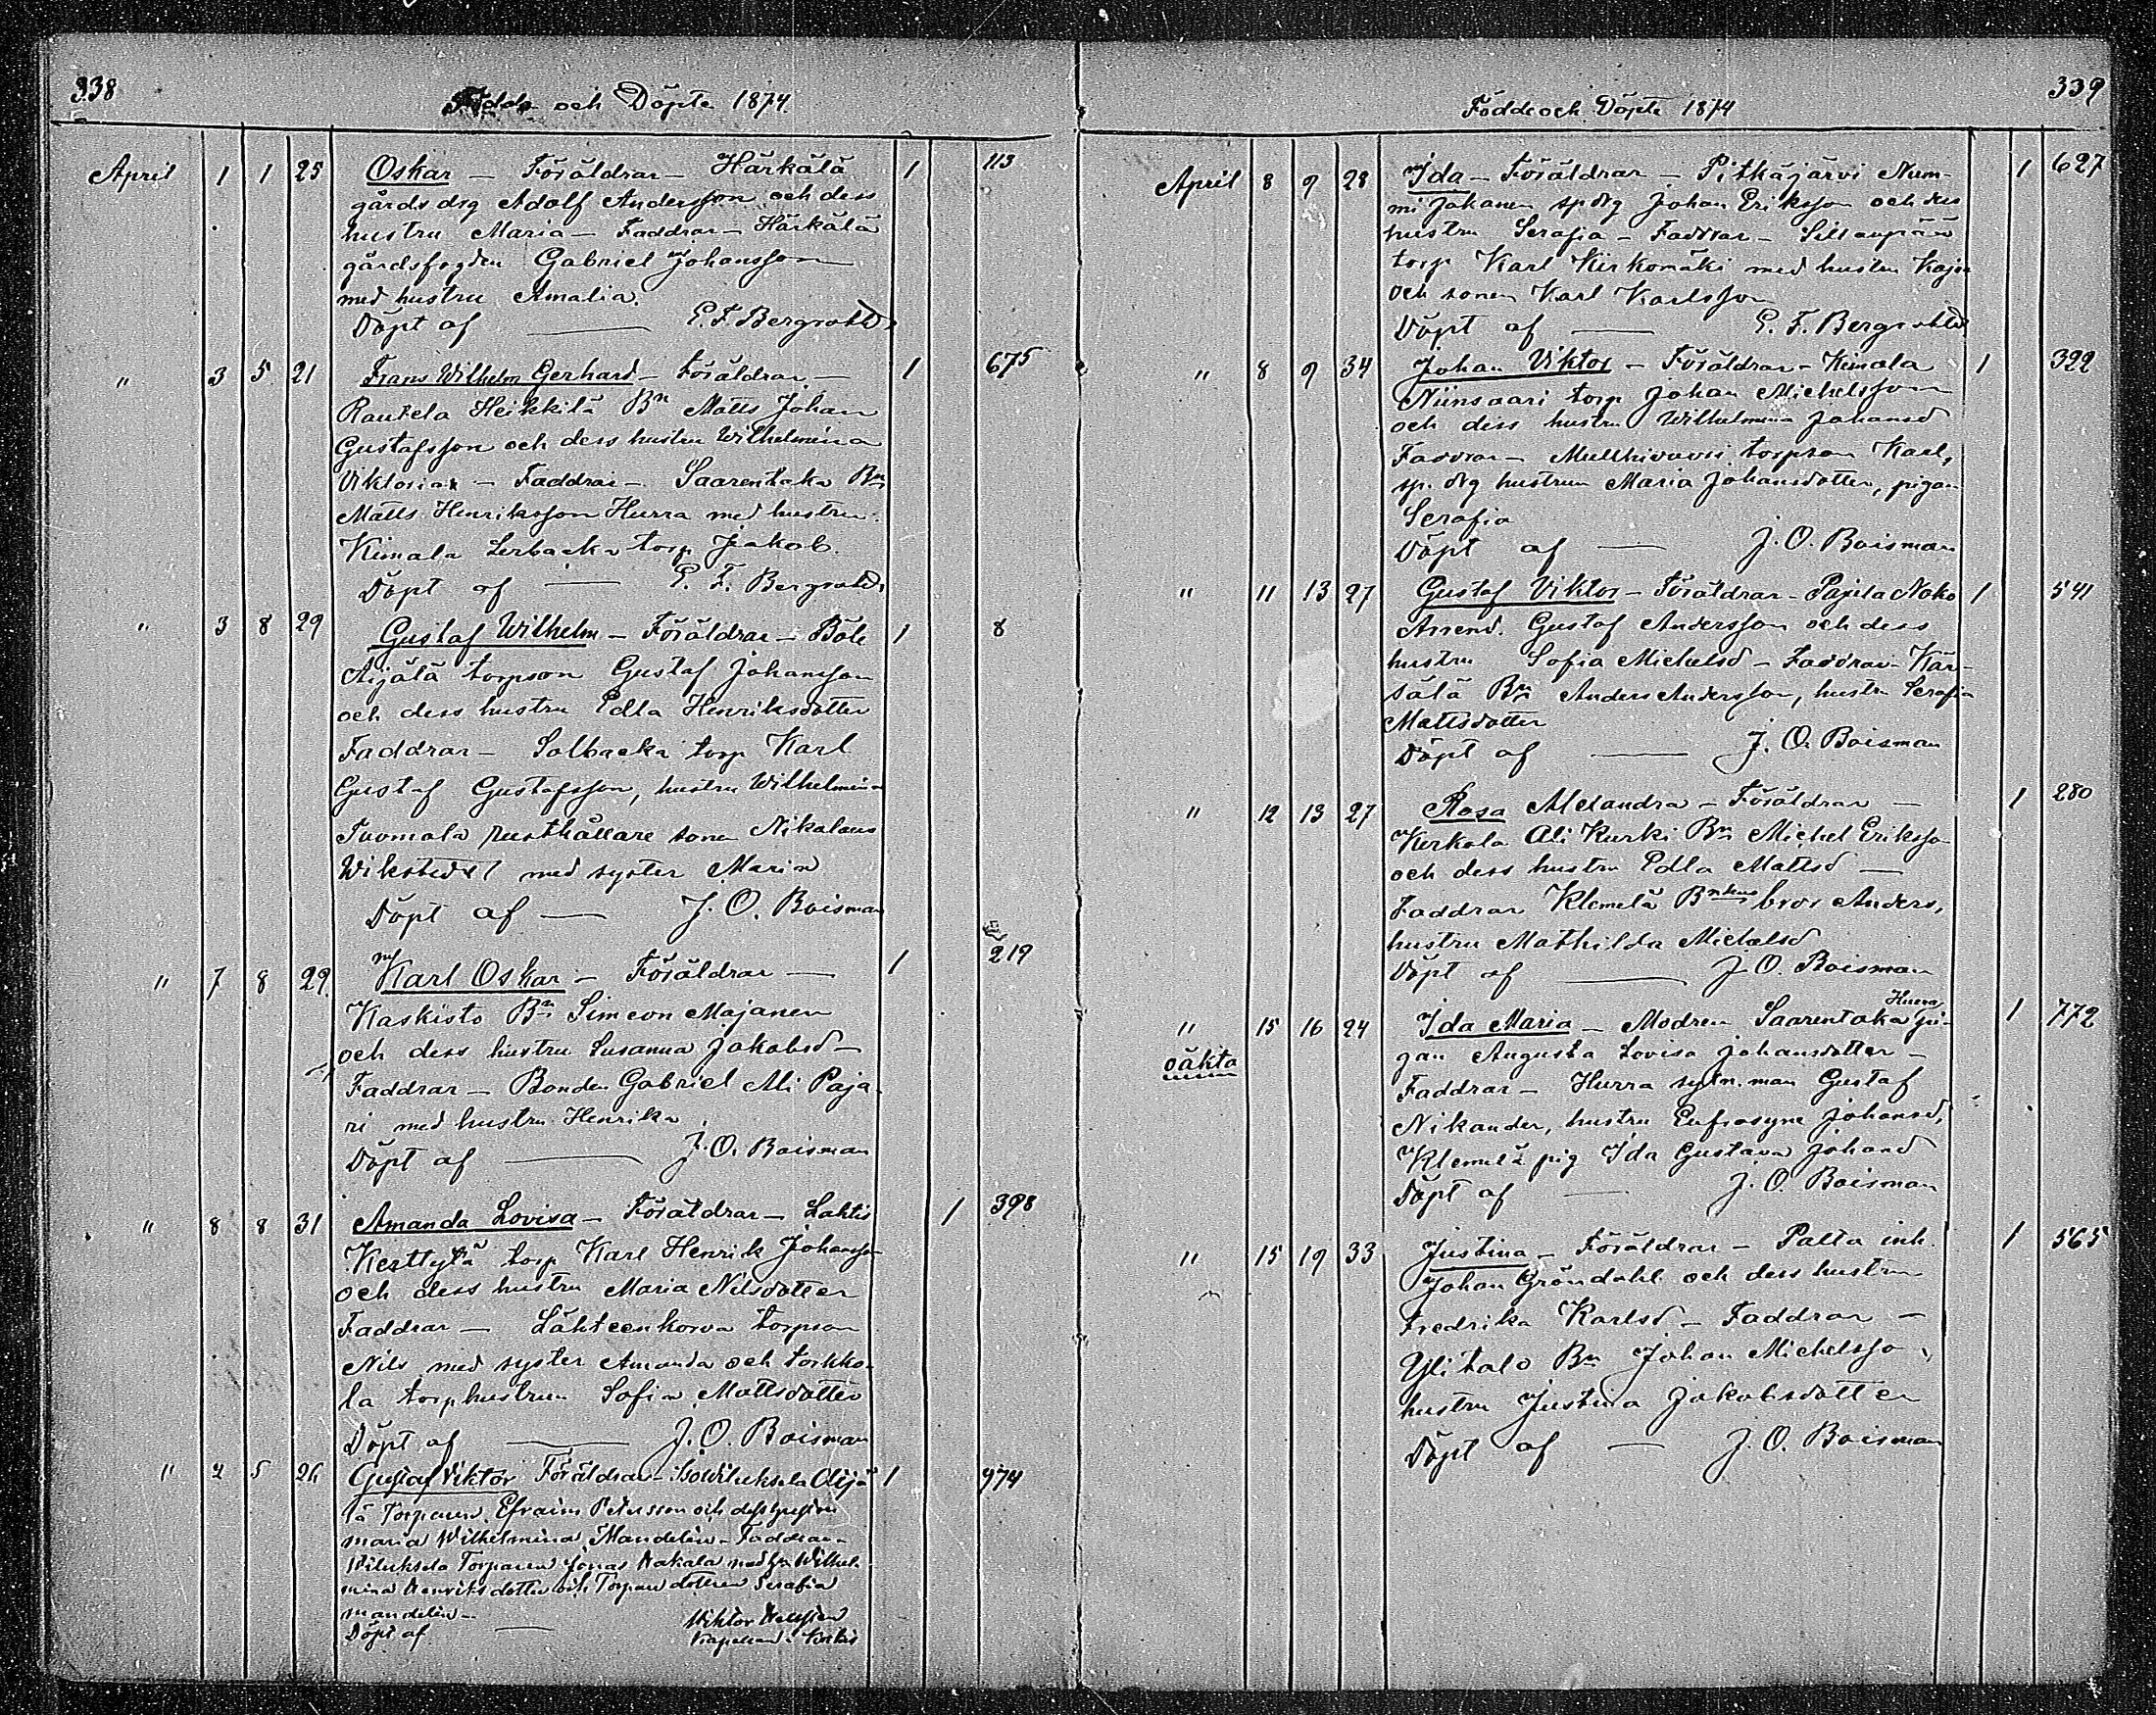 338
Födda och Döpte 1874.
April 1 1 25 Oskar – Föräldrar – Härkälä 1 113
gårds drg Adolf Andersson och dess
hustru Maria – Faddrar – Härkälä
gårdsfogden Gabriel Johansson
med hustru Amalia.
Döpt af — E. F. Bergroth
" 3 5 21 Frans Wilhelm Gerhard – Föräldrar – 1 675
Raukela Heikkilä Bn Matts Johan
Gustafsson och dess hustru Wilhelmina
Viktoria – Faddrar – Saarentaka Bn
Matts Henriksson Hurra med hustru
Kimala Lerbacka torp Jakob.
Döpt af — E. F. Bergroth
" 3 8 29 Gustaf Wilhelm – Föräldrar – Böle 1 8
Äijälä torpson Gustaf Johansson
och dess hustru Edla Henriksdotter
Faddrar – Solbacka torp Karl
Gustaf Gustafsson, hustru Wilhelmina
Tuomala rusthållare sonen Nikolaus
Wikstedt med syster Maria
Döpt af — J. O. Boisman
" 7 8 29 Karl Oskar – Föräldrar – 1 219
Kaskisto Bn Simeon Majanen
och dess hustru Susanna Jakobsd –
Faddrar – Bonden Gabriel Ali Paja-
ri med hustru Henrika
Döpt af — J. O. Boisman
" 8 8 31 Amanda Lovisa – Föräldrar – Lahtis 1 398
Kerttylä torp Karl Henrik Johansson
och dess hustru Maria Nilsdotter
Faddrar – Lähteenkorva torpson
Nils med syster Amanda och torkko-
la torphustrun Sofia Mattsdotter
Döpt af — J. O. Boisman
" 2 5 26 Gustaf Viktor Föräldrar – Isowiluksela Äijä- 1 974
lä Torparen Efraim Petersson och dess hustru
Maria Wilhelmina Mandelin – Faddrar –
Wiluksela Torparen Jonas Wakala med h. Wilhel-
mina Henriksdotter och Torpare dottren Serafia
Mandelin –
Döpt af — Wiktor
339
Födde och Döpte 1874
April 8 9 28 Ida – Föräldrar – Pitkäjärvi Num- 1 627
mi Jakanen sp drg Johan Eriksson och dess
hustru Serafia – Faddrar – Sillanpää
torp Karl Kirkomäki med hustru Kajsa
och sonen Karl Karlsson
Döpt af — E. F. Bergroth
" 8 9 34 Johan Viktor – Föräldrar – Kimala 1 322
Niinsaari torp Johan Michelsson
och dess hustru Wilhelmina Johansd
Faddrar – Mullhivuori torpson Karl,
sp. drg hustrun Maria Johansdotter, pigan
Serafia
Döpt af — J. O. Boisman
" 11 13 27 Gustaf Viktor – Föräldrar – Pajula Noko 1 541
Arrend. Gustaf Andersson och dess
hustru Sofia Michelsd – Faddrar – Kär-
sälä Bn Anders Andersson, hustru Serafia
Mattsdotter
Döpt af — J. O. Boisman
" 12 13 27 Rosa Alexandra – Föräldrar – 1 280
Kerkola Ali Kurki Bn Michel Eriksson
och dess hustru Edla Mattsd —
Faddrar Klemelä Bndens bror Anders,
hustru Mathilda Michelsd
Döpt af — J. O. Boisman
" 15 16 24 Ida Maria – Modren Saarentaka Hurra pi- 1 772
oäkta
gan Augusta Lovisa Johansdotter –
Faddrar – Hurra sytn. man Gustaf
Nikander, hustru Eufrosyne Johansd,
Klemelä pig Ida Gustava Johansd
Döpt af — J. O. Boisman
" 15 19 33 Justina – Föräldrar – Palta inh. 1 565
Johan Gröndahl och dess hustru
Fredrika Karlsd – Faddrar –
Ylitalo Bn Johan Michelsson,
hustru Justina Jakobsdotter
Döpt af — J. O. Boisman